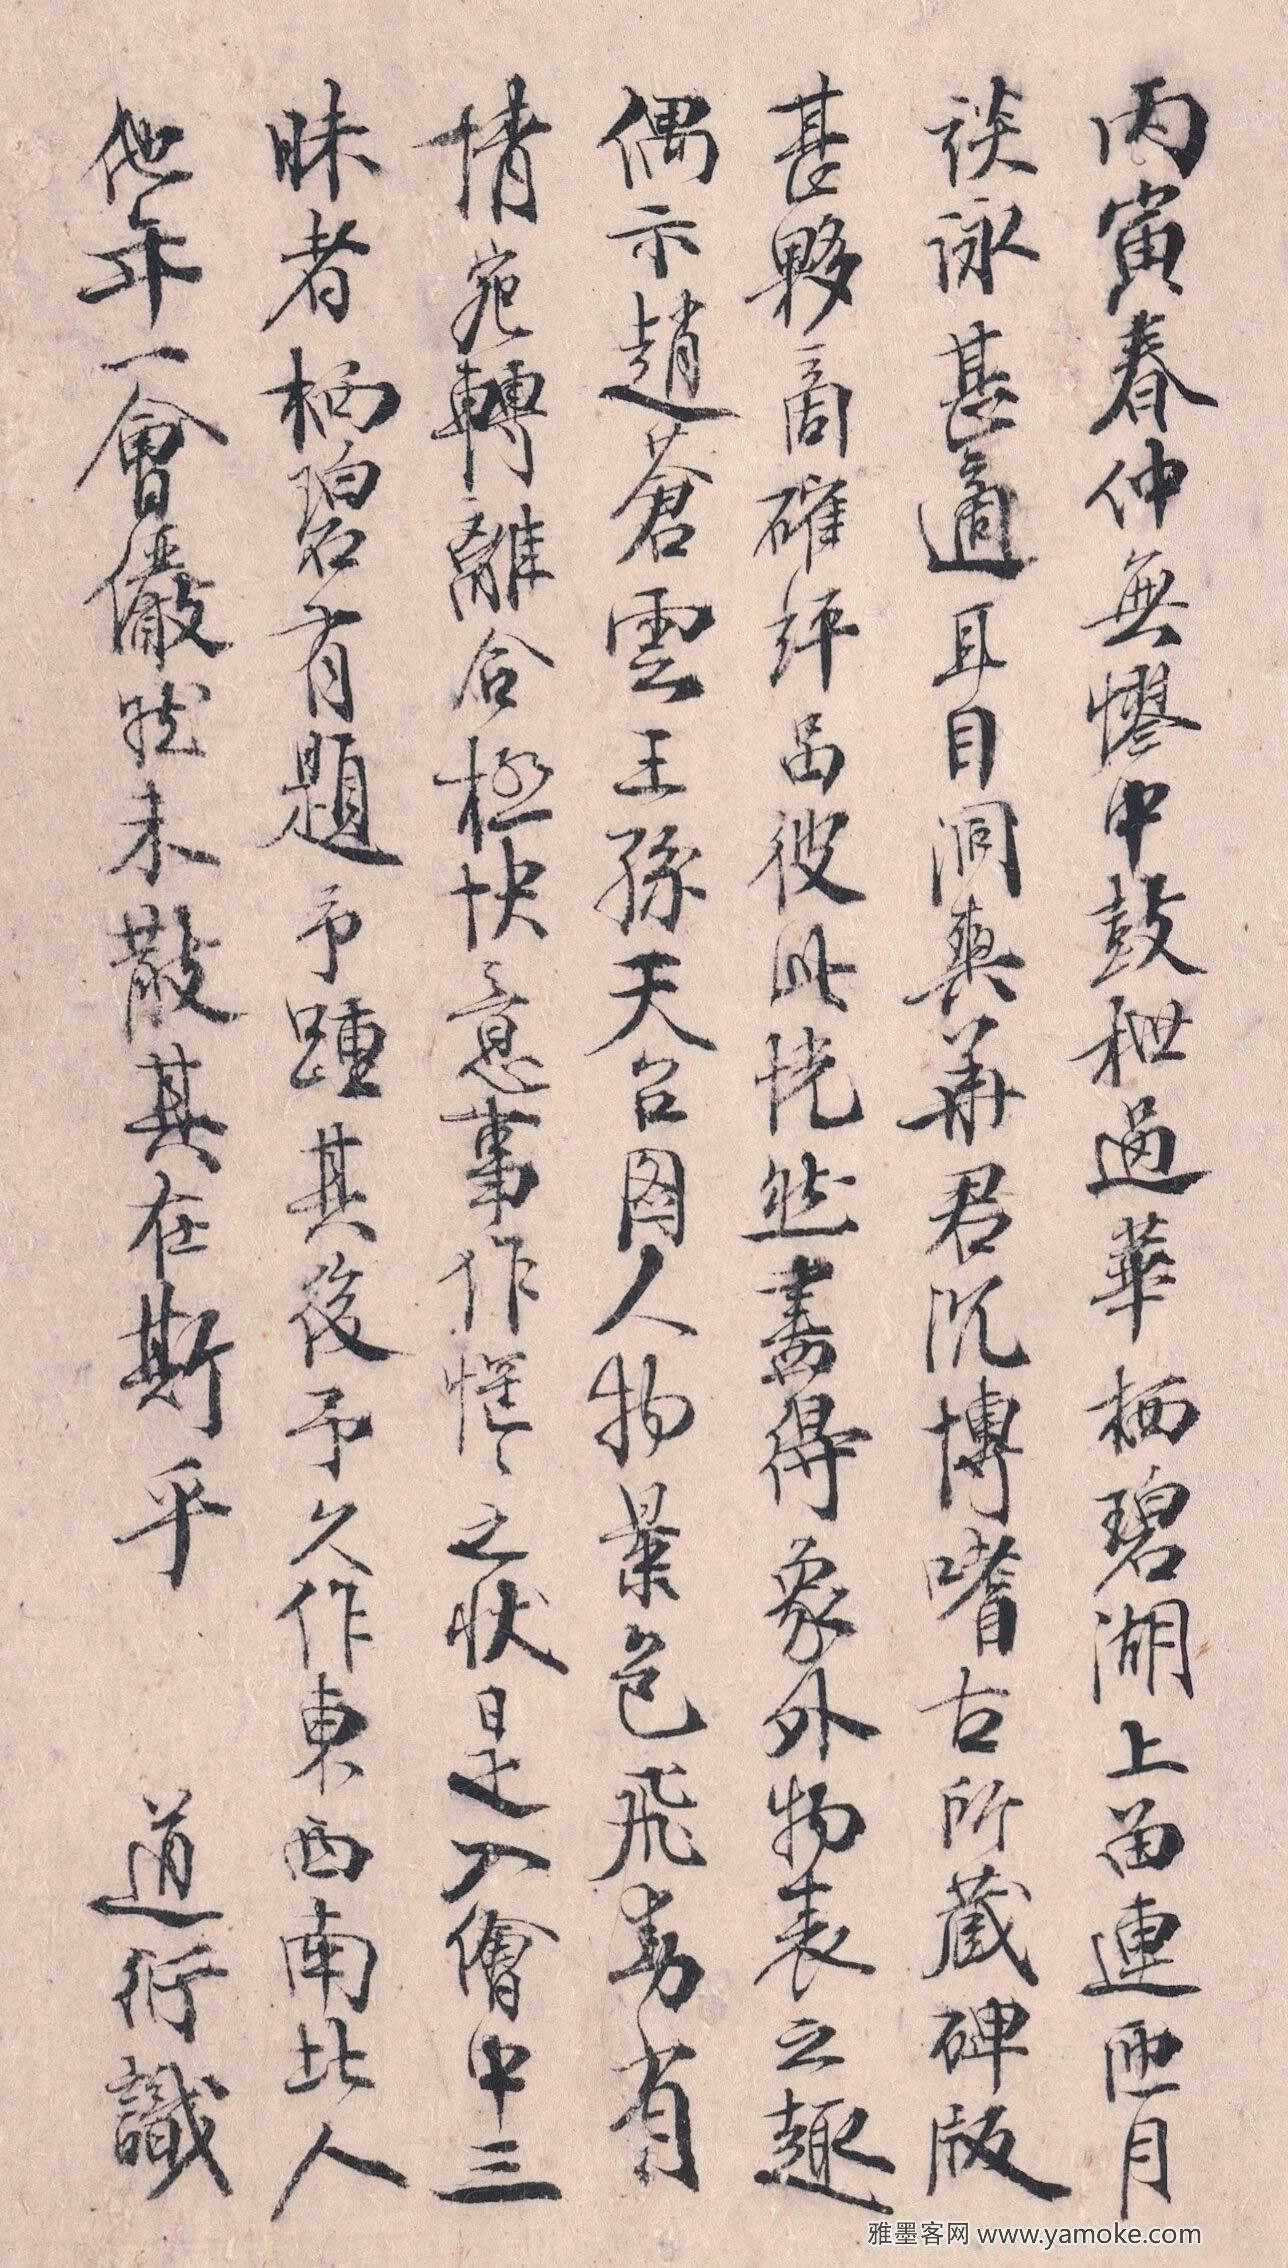 丙寅春仲無憀中鼓枻過華栖碧湖上留連匝月
談詠甚適耳目洞爽華君沉博嗜古所藏碑版
甚夥商確評品彼此恍然盡得象外物表之趣
偶示趙蒼雲王孫天台圖人物景色飛動有
情宛轉離合極快意事作惟〻之狀是入繪中三
昧者栖碧有題予踵其後予久作東西南北人
他年一會儼然未散其在斯乎
道衍識
雅墨客网 www.yamoke.com